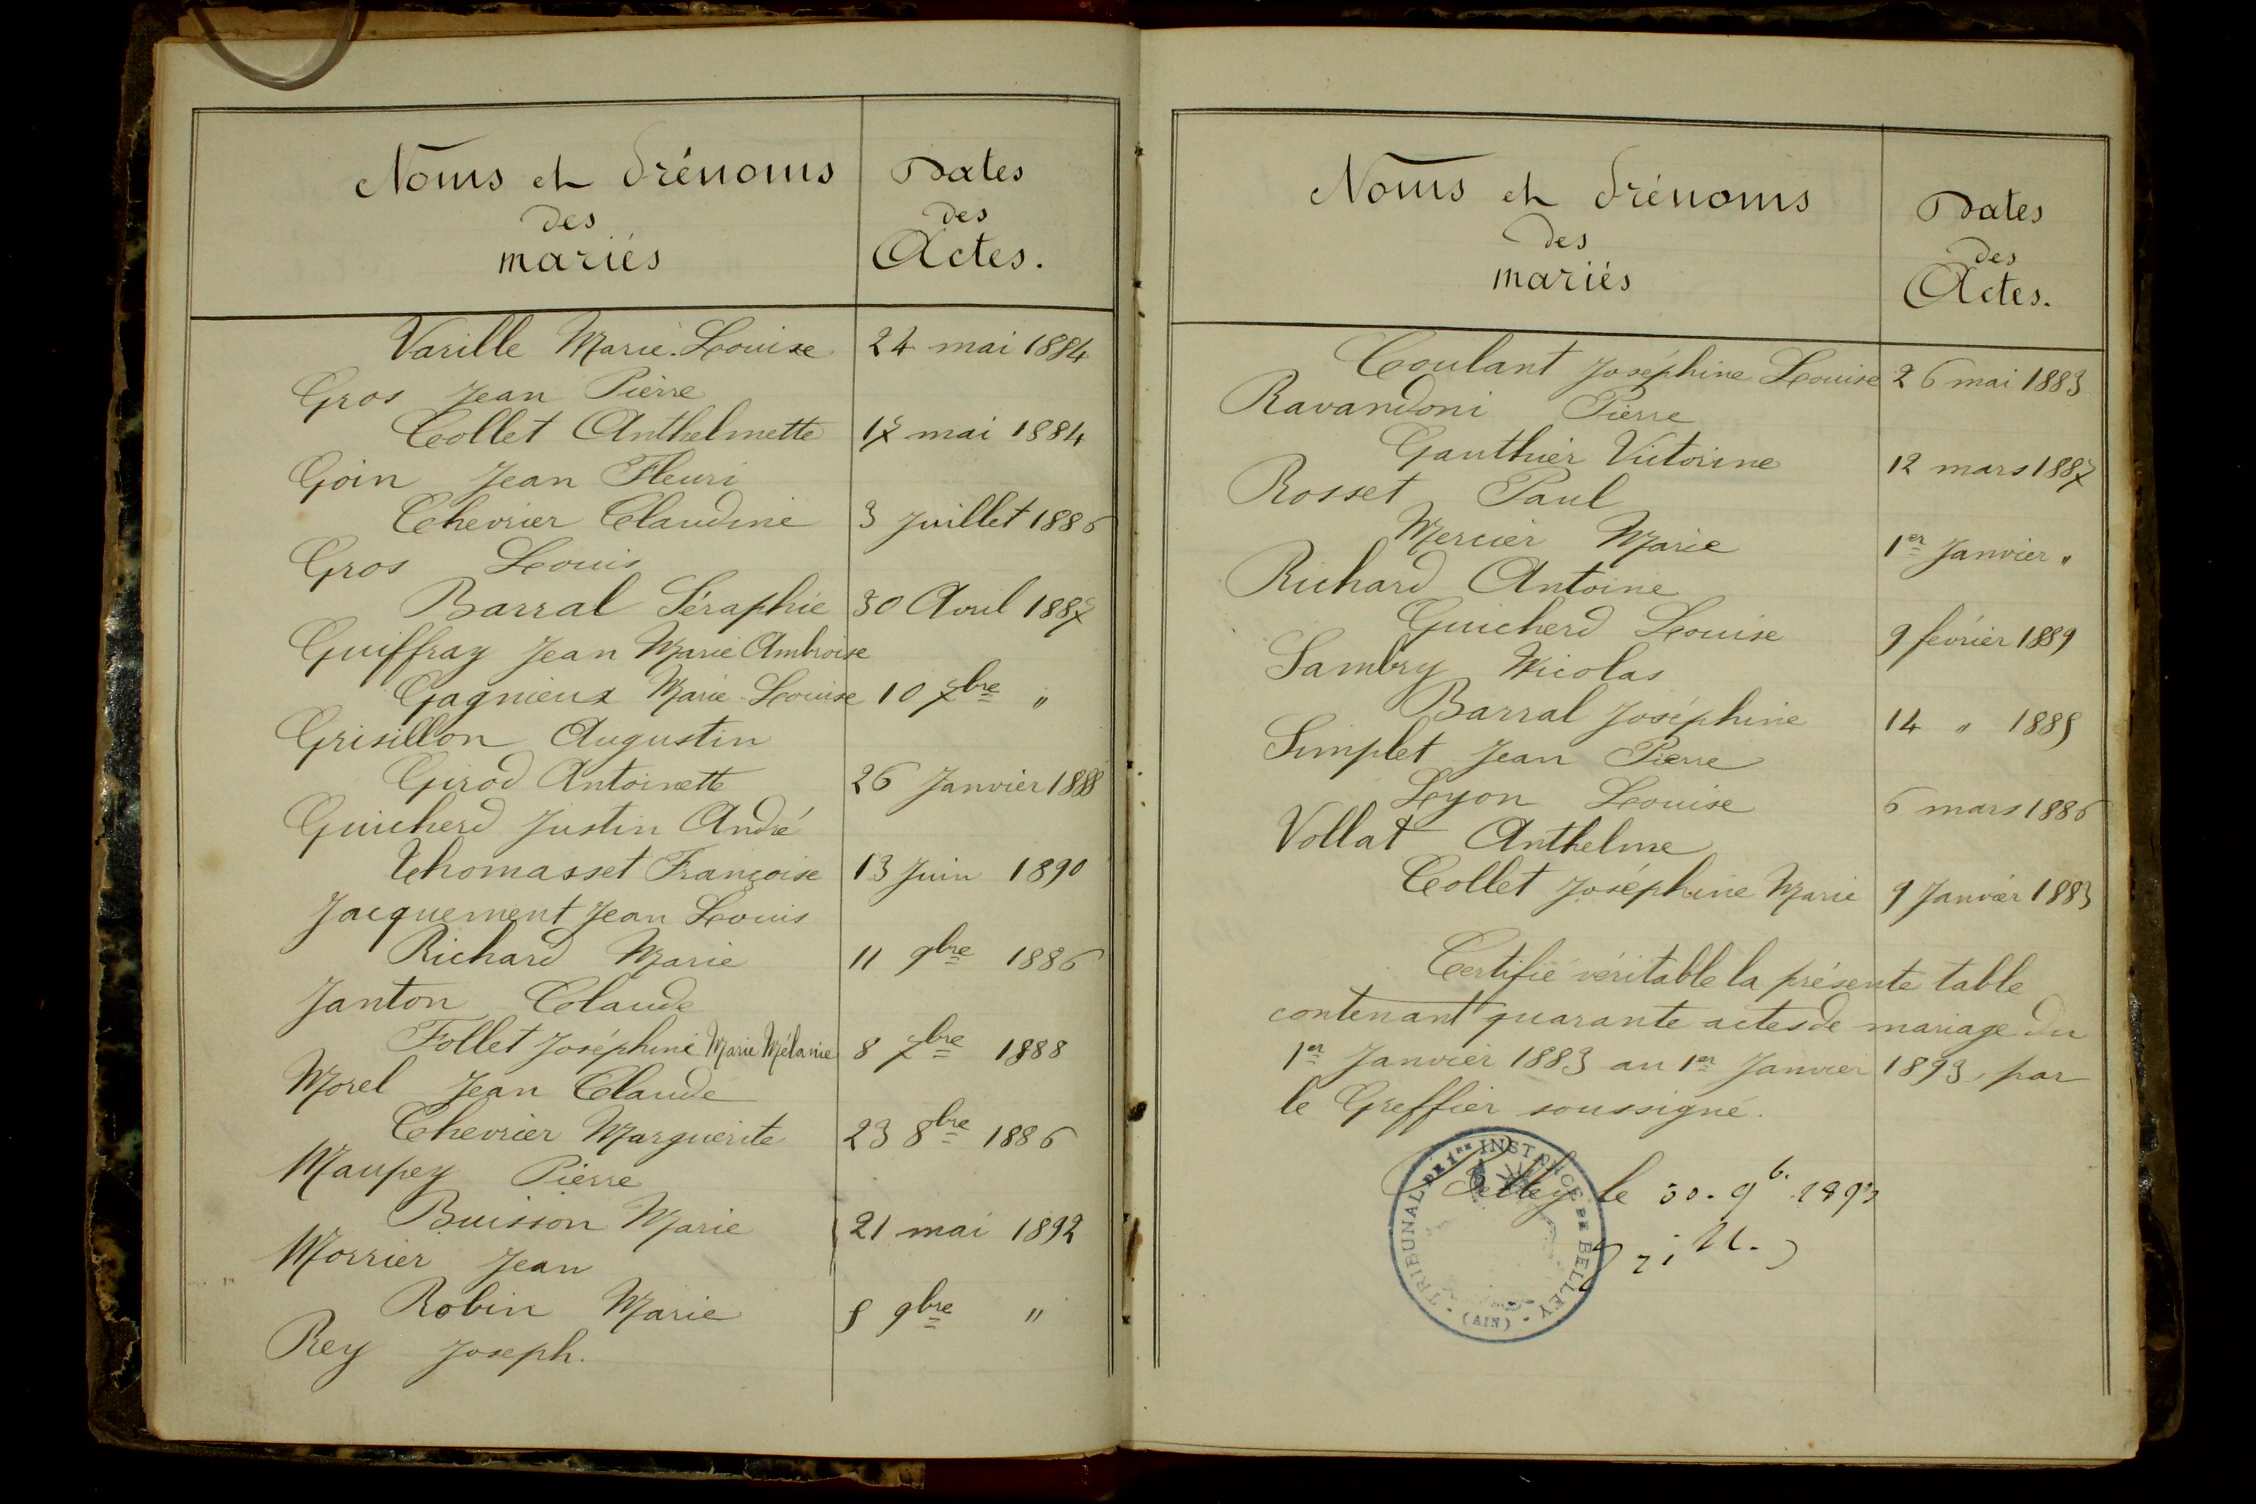 Noms et Prénoms
des
mariés
Dates
des
Actes.
Varille Marie-Louise 24 mai 1884
Gros Jean Pierre
Collet Anthelmette 17 mai 1884
Goin Jean Fleuri
Chevrier Claudine 3 Juillet 1886
Gros Louis
Barral Séraphie 30 Avril 1887
Guiffray Jean Marie Ambroise
Gagnieux Marie-Louise 10 7bre "
Grisillon Augustin
Girod Antoinette 26 Janvier 1888
Guicherd Justin André
Thomasset Françoise 13 Juin 1890
Jacquement Jean Louis
Richard Marie 11 9bre 1886
Janton Claude
Follet Joséphine Marie Mélanie 8 7bre 1888
Morel Jean Claude
Chevrier Marguerite 23 8bre 1886
Maupey Pierre
Buisson Marie 21 mai 1892
Morrier Jean
Robin Marie 8 9bre "
Rey Joseph.
Noms et Prénoms
des
mariés
Dates
des
Actes.
Coulant Joséphine Louise 26 mai 1883
Ravandoni Pierre
Gauthier Victorine 12 mars 1887
Rosset Paul
Mercier Marie 1er Janvier "
Richard Antoine
Guicherd Louise 9 février 1889
Sambry Nicolas
Barral Joséphine 14 " 1885
Simplet Jean Pierre
Lyon Louise 6 mars 1886
Vollat Anthelme
Collet Joséphine Marie 9 Janvier 1883
Certifié véritable la présente table
contenant quarante actes de mariage du
1er Janvier 1883 au 1er Janvier 1893, par
le Greffier soussigné.
Belley le 30. 9b. 1893
TRIBUNAL DE 1RE INSTANCE DE BELLEY
(AIN)